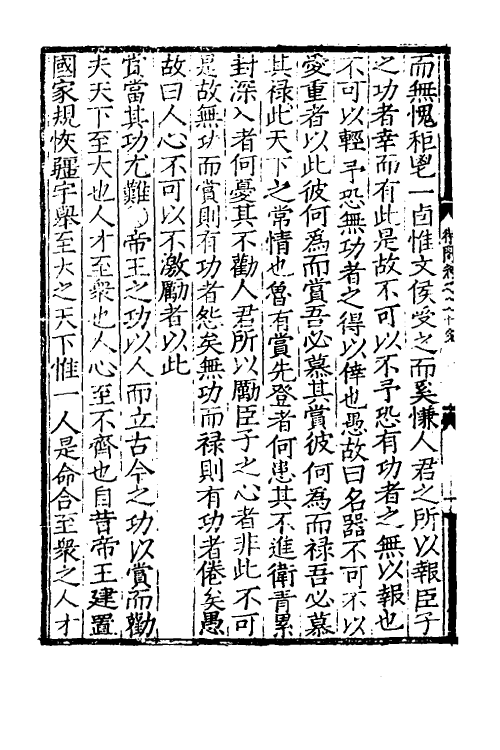 而無愧秬鬯一卣惟文侯受之而奚慊人君之所以報臣子
之功者幸而有此是故不可以不予恐有功者之無以報也
不可以輕予恐無功者之得以倖也愚故曰名器不可不以
愛重者以此彼何為而賞吾必慕其賞彼何為而禄吾必慕
其禄此天下之常情也魯有賞先登者何患其不進衛青累
封深入者何憂其不勸人君所以勵臣子之心者非此不可
是故無功而賞則有功者怨矣無功而禄則有功者倦矣愚
故曰人心不可以不激勵者以此
賞當其功尤難帝王之功以人而立古今之功以賞而勸
夫天下至大也人才至衆也人心至不齊也自昔帝王建置
國家規恢疆宇舉至大之天下惟一人是命合至衆之人才